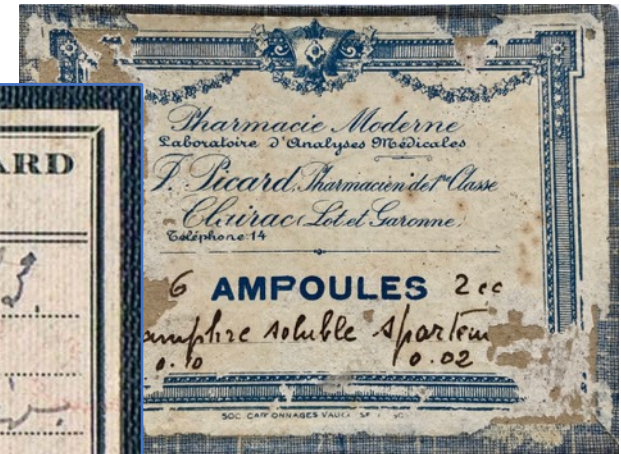 ARD
3
Pharmacie Moderne
Laboratoire d'Analyses Médicales
Picard, Pharmacien de 1re Classe
Clairac (Lot et Garonne)
Téléphone 14
6 AMPOULES 2 cc
soluble
0.10 0.02
SOC. CARTONNAGES